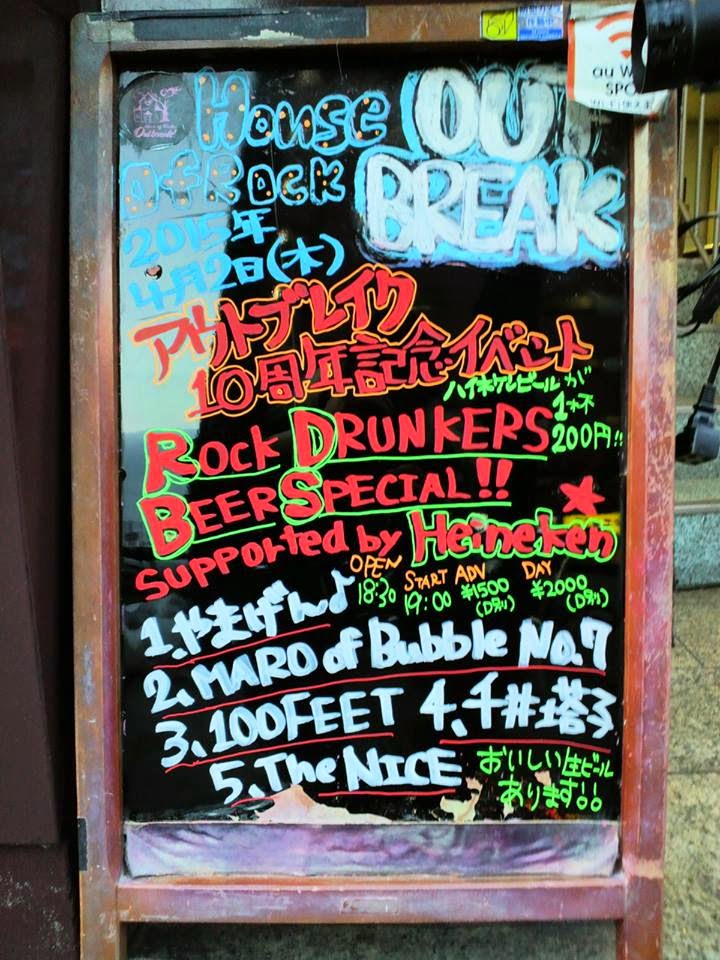 House OUT
Of Rock BREAK
2015年
4月2日(木)
アウトブレイク
10周年記念イベント
ハイネケンビールが
1杯
200円!!
ROCK DRUNKERS
BEER SPECIAL!!
supported by Heineken
OPEN 18:30
START 19:00
ADV ¥1500 (D別)
DAY ¥2000 (D別)
1、やまげん♪
2、MARO of Bubble No.7
3、100FEET 4、千井塔子
5、The NICE
おいしい生ビール
あります!!
au W
SPO